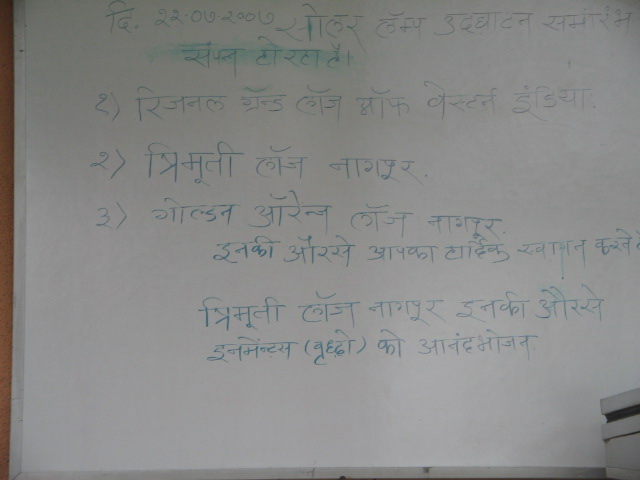 दि. २२-०७-२००७ सोलर लॅम्प उदघाटन समारंभ
संपन्न हो रहा है।
१) रिजनल ग्रॅन्ड लॉज ऑफ वेस्टर्न इंडिया.
२) त्रिमूर्ती लॉज नागपूर.
३) गोल्डन ऑरेन्ज लॉज नागपूर.
इनकी औरसे आपका हार्दिक स्वागत करते है
त्रिमूर्ती लॉज नागपूर इनकी औरसे
इनमेन्टस (वृध्दो) को आनंदभोजन